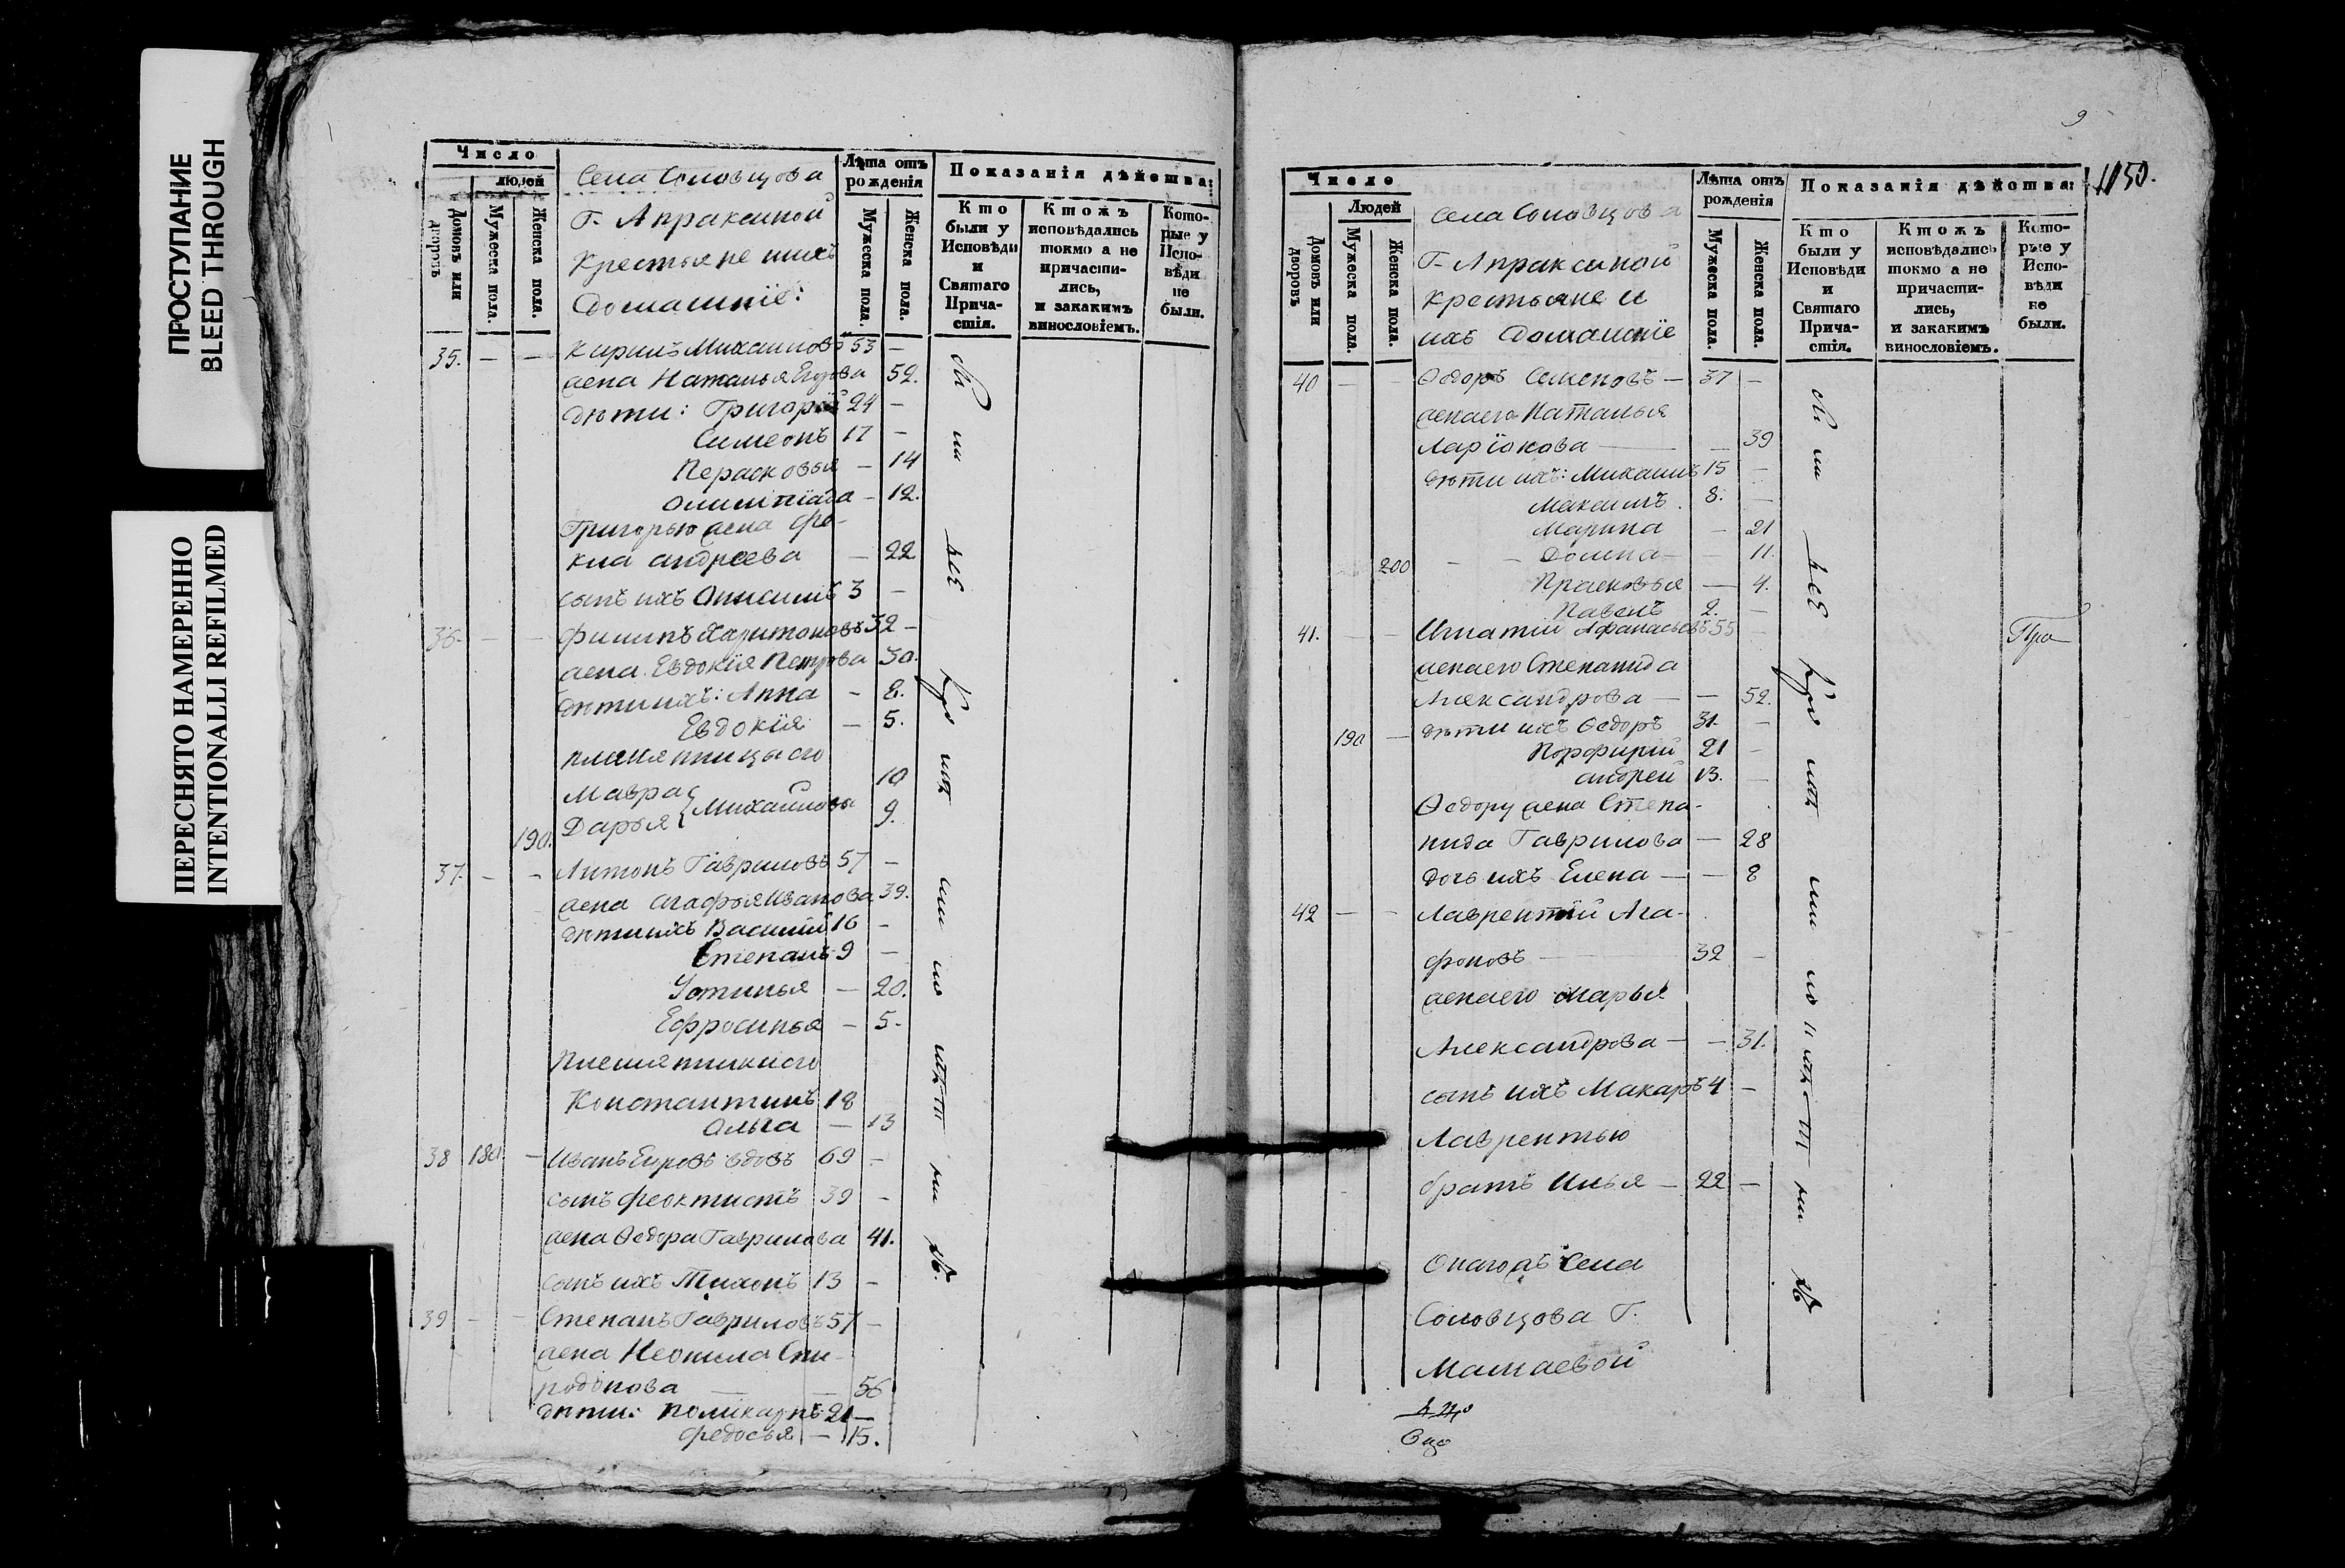 ПРОСТУПАНИЕ
BLEED THROUGH
ПЕРЕСНЯТО НАМЕРЕННО
INTENTIONALLI REFILMED
Число
людей
Домовъ или дворовъ
Мужеска пола.
Женска пола.
Села Соловцова
Г. Апраксиной
Крестьяне ихъ
Домашнїе:
Лѣта отъ рожденія
Мужеска пола.
Женска пола.
Показанія дѣйства:
Кто были у Исповѣди и Святаго Прича-стія.
Ктожъ исповѣдались токмо а не причасти-лись, и закакимъ винословіемъ.
Кото-рые у Испо-вѣди не были.
35. — — Кирилъ Михаиловъ 53 —
жена Наталья Егорова 52.
дѣти: Григорїй 24 —
Симеонъ 17 —
Перасковья — 14
Олимпїада — 12.
Григорью жена Фе-
кла андреева — 22
сынъ ихъ Онисимъ 3 —
36. — — Филипъ Харитоновъ 32 —
жена Евдокїя Петрова 30.
дѣти ихъ: Анна — 8.
Евдокїя — 5.
племянницы его
Мавра 10
Михайловы
190. Дарья 9.
37. — — Антонъ Гавриловъ 57 —
жена агафья Иванова 39.
дѣти ихъ Василїй 16 —
Степанъ 9 —
Устинья — 20.
Ефросинья — 5.
Племянники его
Константинъ 18
Ольга — 13
38 180 — Иванъ Егоровъ вдовъ 69 —
сынъ Феоктистъ 39 —
жена Ѳедора Гаврилова 41.
сынъ ихъ Тихонъ 13 —
39 — — Степанъ Гавриловъ 57 —
жена Неонила Спи-
ридонова — — 56
дѣти: Поликарпъ 21 —
Федосья — 15.
9
1150.
Число
Людей
Домовъ или дворовъ
Мужеска пола.
Женска пола.
Села Соловцова
Г. Апраксиной
крестьяне и
ихъ Домашнїе
Лѣта отъ рожденія
Мужеска пола.
Женска пола.
Показанія дѣйства:
Кто были у Исповѣди и Святаго Прича-стія.
Ктожъ исповѣдались токмо а не причасти-лись, и закакимъ винословіемъ.
Кото-рые у Испо-вѣди не были.
40 — — Ѳедоръ Семеновъ — 37 —
жена его Наталья
Ларїонова — — 39
дѣти ихъ: Михаилъ 15 —
Максимъ 8. —
Марина — 21
200 Домна — — 11.
Прасковья — 4.
Павелъ 2. —
41. — — Игнатїй Афанасьевъ 55 —
жена его Степанида
Александрова — — 52.
190 — дѣти ихъ Ѳедоръ 31. —
Порфирїй 21 —
андрей 13. —
Ѳедору жена Степа-
нида Гаврилова — 28
дочь ихъ Елена — — 8
42 — — Лаврентїй Ага-
фоновъ — 32 —
жена его Марья
Александрова — — 31.
сынъ ихъ Макаръ 4 —
Лаврентью
братъ Илья — 22 —
Онагожъ Села
Соловцова Г.
Мамаевой